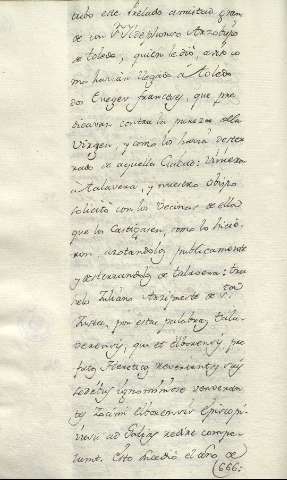 tubo este Prelado amistad gran
de con Sn. Yldephonso Arzobispo
de toledo, quien le dió, aviso co
mo havian llegado á Toledo
dos Erejes franceses, que pre
dicavan contra la pureza de la
Virgen, y como los havia dester
rado de aquella Ciudad: vinieron
a talavera, y nuestro obispo
solicitó con los Vecinos de ella
que los Castigasen, como lo hicie
ron azotandolos publicamente
y desterrandolos de talavera: trae
lo Juliano Arzipreste de Sta.
Justa, por estas palabras, Tala
verenses, qui et elborenses, pre
fatos Hereticos reverrentes
sedibus ignominiose
Elborensis Episcopi
ad Galias redire compu
lerunt. Esto sucedió el año de
666: